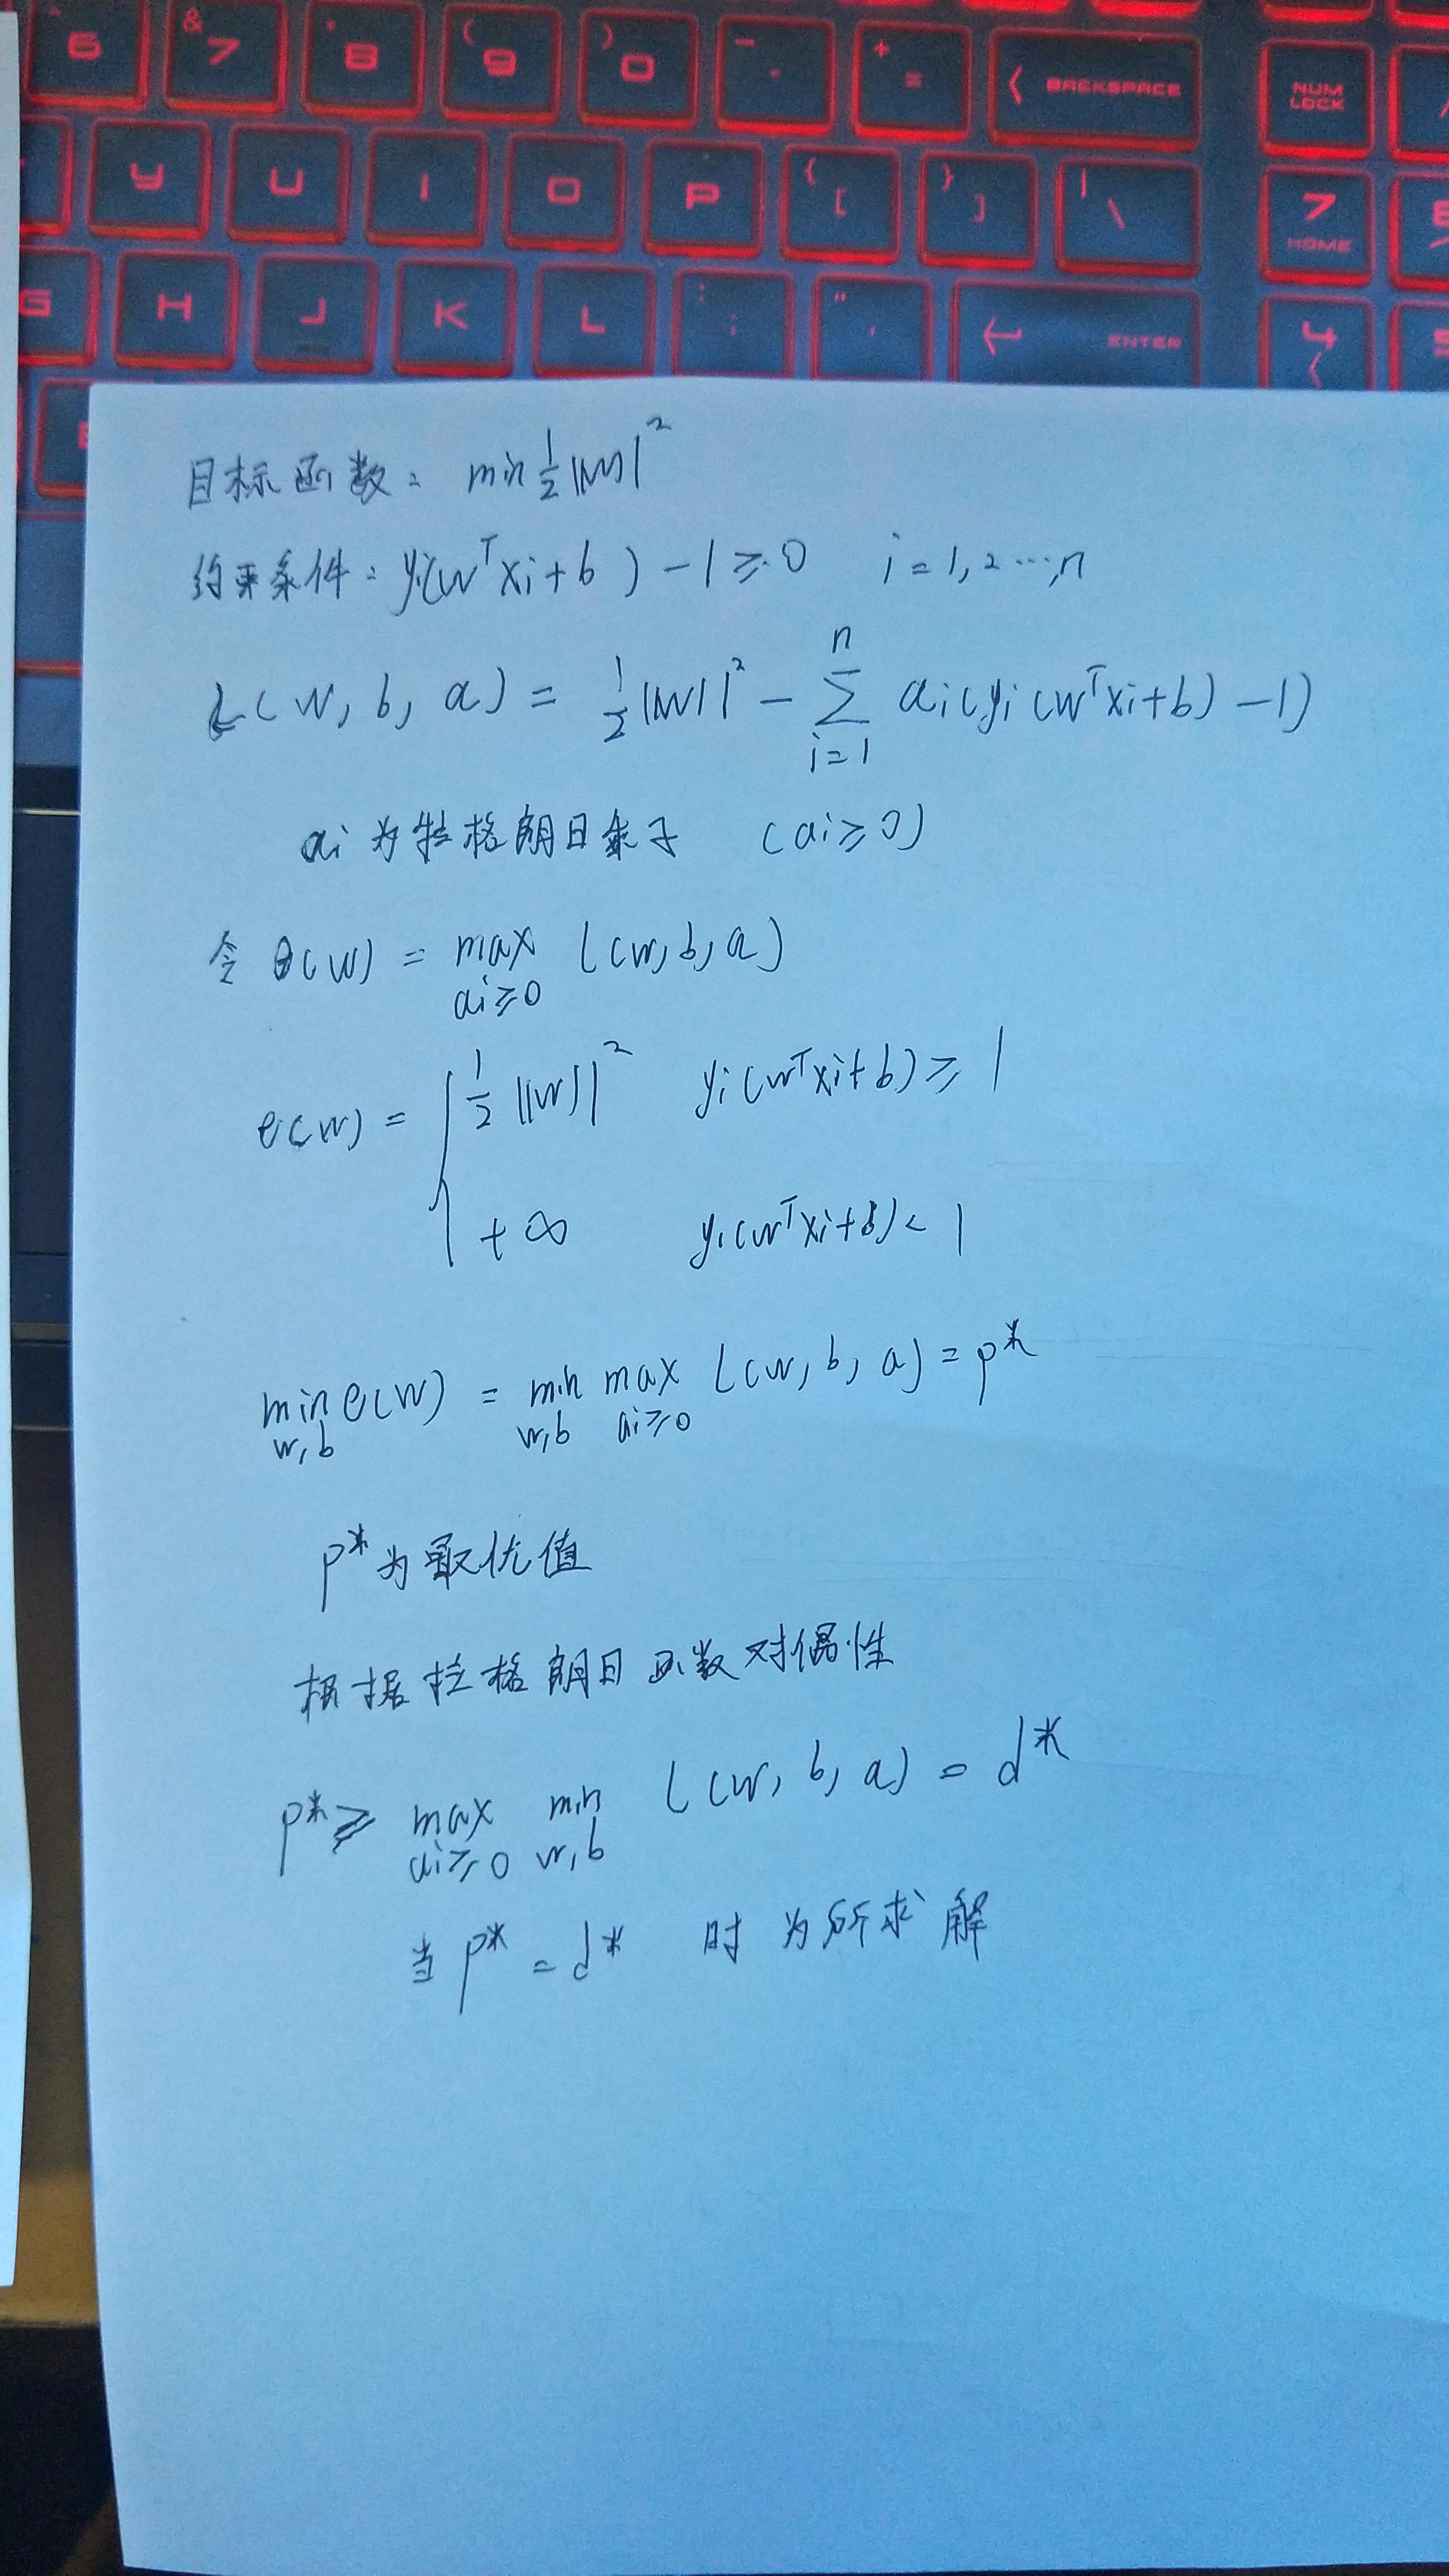 & 6 7 * 8 ( 9 ) 0 - + = ( BACKSPACE NUM LOCK
Y U I O P { [ } ] | \ 7 HOME
G H J K L : ; " , ← ENTER 4
目标函数: min 1/2 ||W||²
约束条件: yi(wᵀxi+b)-1≥0 i=1,2…,n
L(w,b,a) = 1/2 ||W||² - ∑_{i=1}^{n} ai(yi(wᵀxi+b)-1)
ai为拉格朗日乘子 (ai≥0)
令 θ(w) = max_{ai≥0} L(w,b,a)
θ(w) = { 1/2 ||W||² yi(wᵀxi+b)≥1
+∞ yi(wᵀxi+b)<1
min_{w,b} θ(w) = min_{w,b} max_{ai≥0} L(w,b,a) = p*
p*为最优值
根据拉格朗日函数对偶性
p*≥ max_{ai≥0} min_{w,b} L(w,b,a) = d*
当 p* = d* 时为所求解